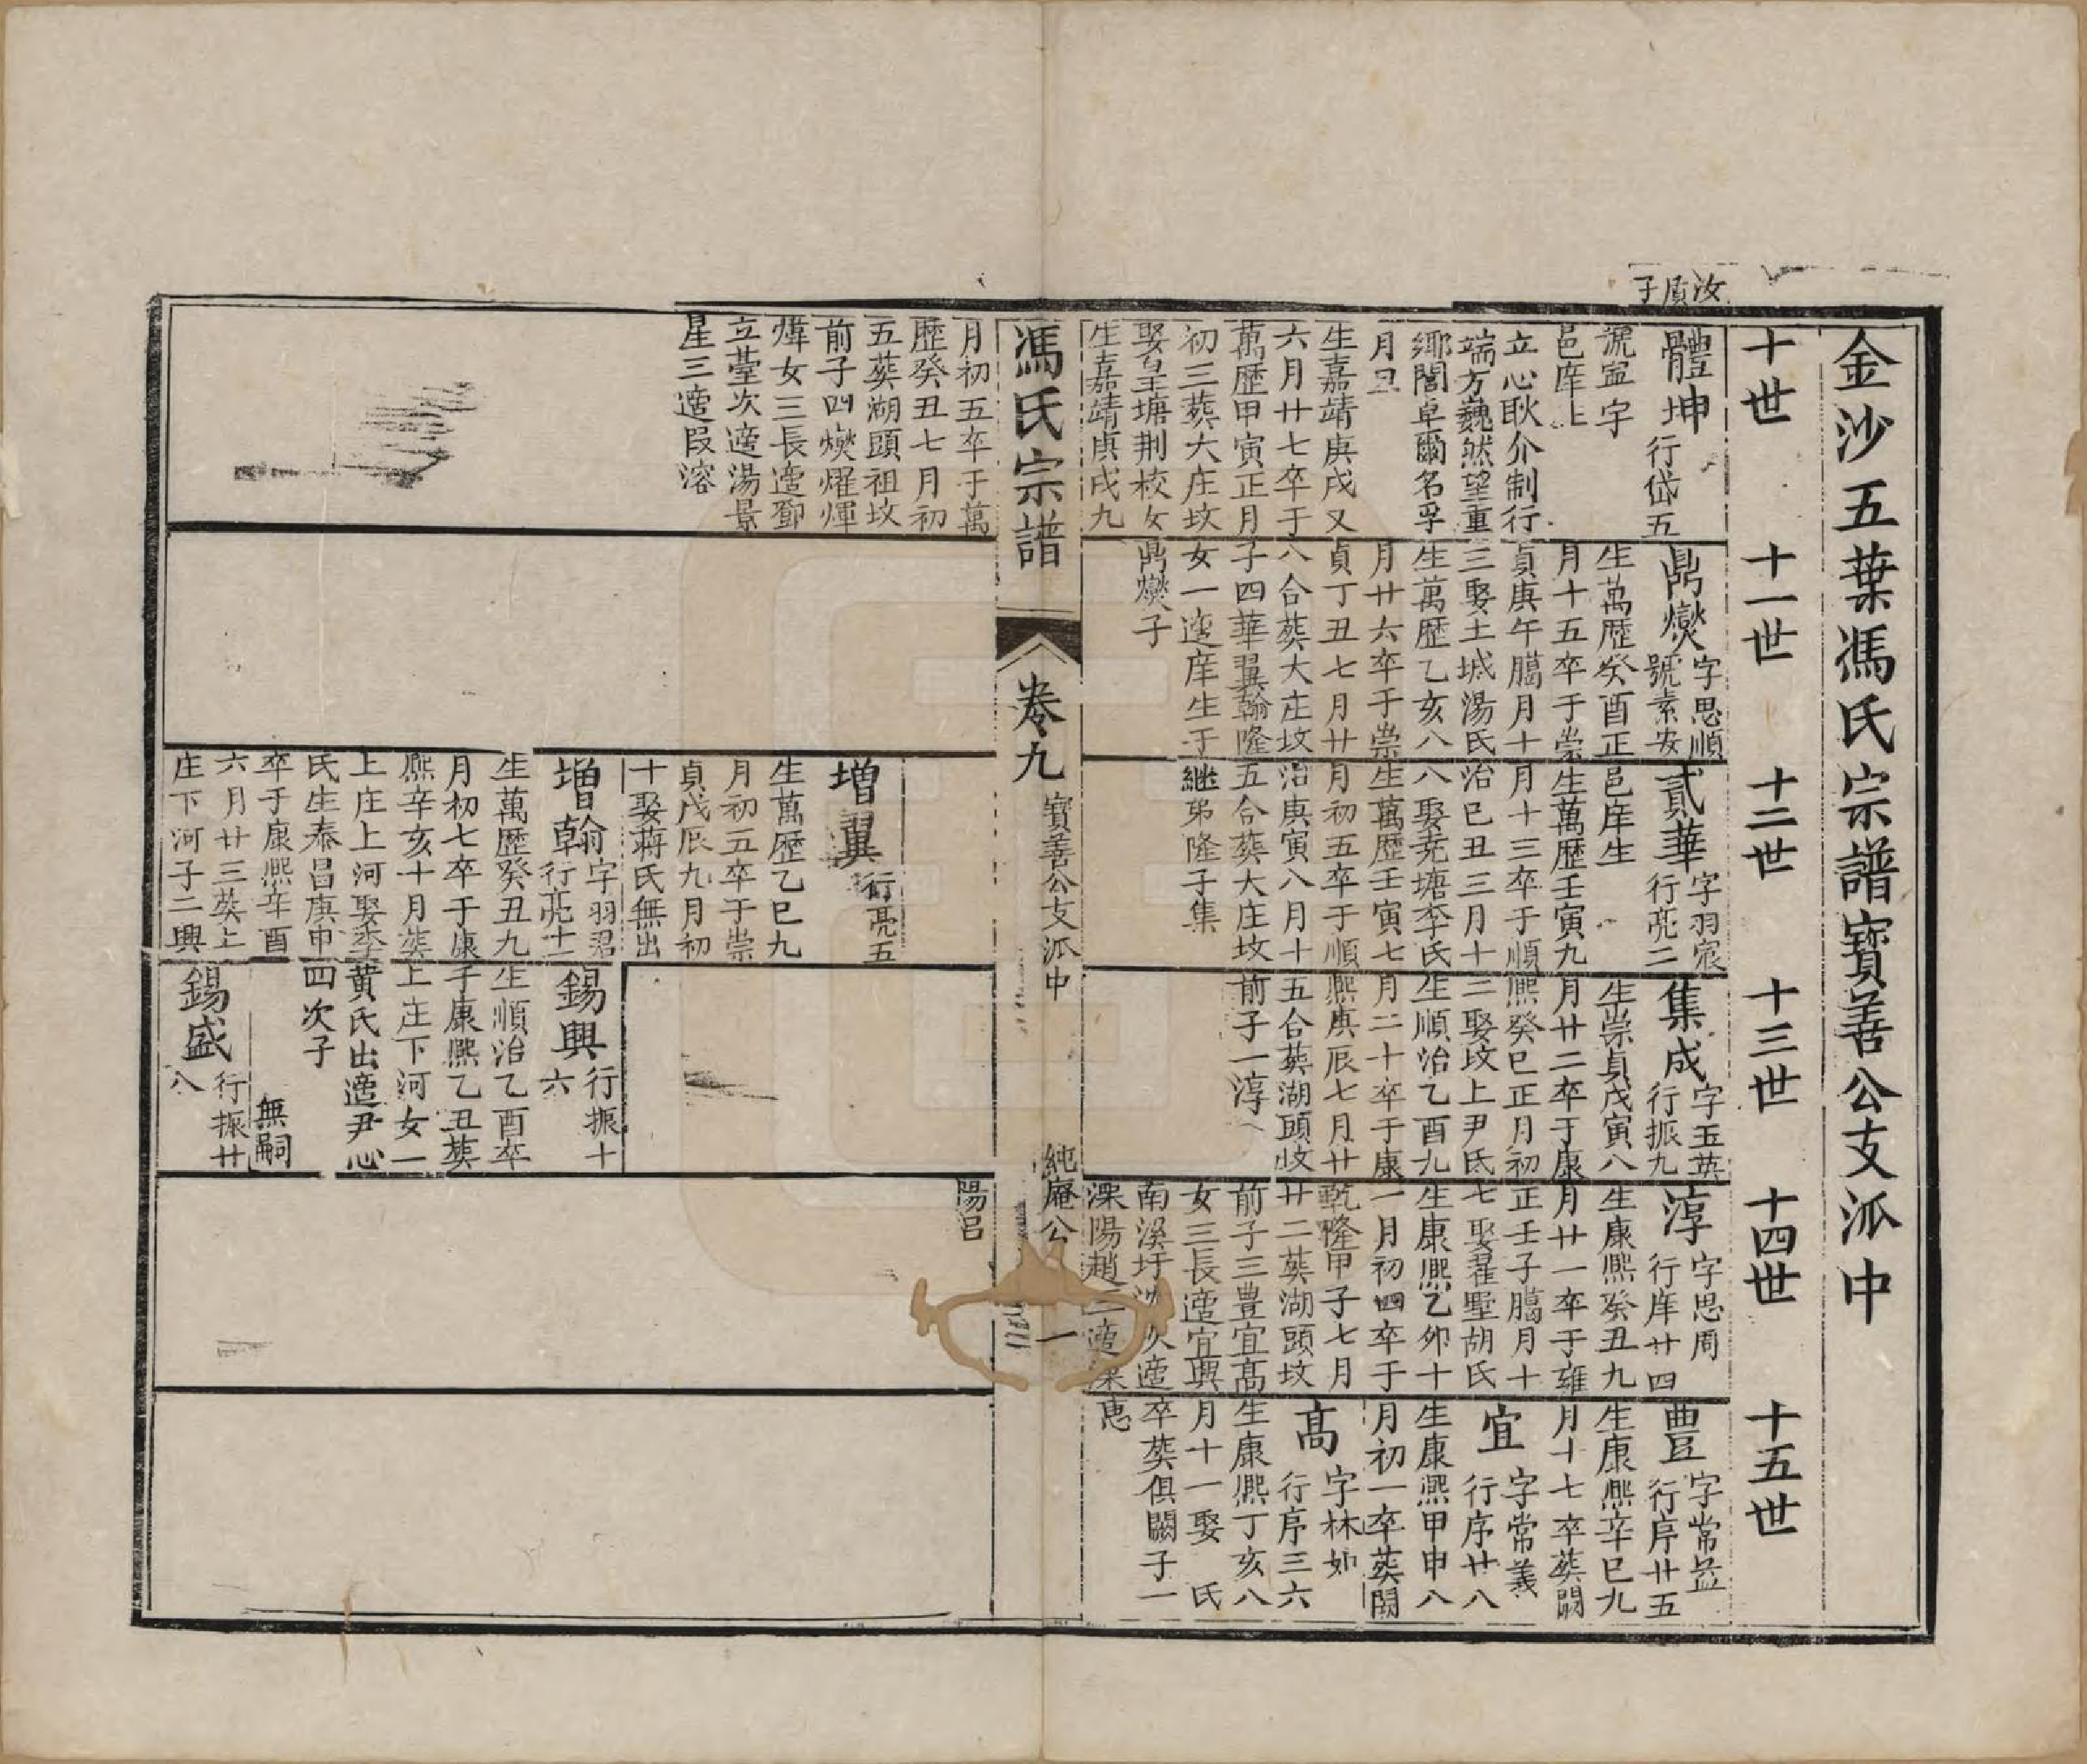 金沙五葉馮氏宗譜寶善公支派中
十世
十一世
十二世
十三世
十四世
十五世
汝質子
體坤
行岱五
號寍宇
邑庠生
立心耿介制行
端方巍然望重
鄉閭卓爾名孚
月旦
生嘉靖庚戌又
六月廿七卒于
萬歷甲寅正月
初三葬大庄坟
娶皇塘荆校女
生嘉靖庚戌九
月初五卒于萬
歷癸丑七月初
五葬湖頭祖坟
前子四爕燿煇
煒女三長適鄧
立薹次適湯景
星三適段溶
鼎爕
字思順
號素安
生萬歷癸酉正
月十五卒于崇
貞庚午臈月十
三娶土城湯氏
生萬歷乙亥八
月廿六卒于崇
貞丁丑七月廿
八合葬大庄坟
子四華翼翰隆
女一適庠生于
鼎爕子
貳華
字羽宸
行亮二
邑庠生
生萬歷壬寅九
月十三卒于順
治巳丑三月十
八娶尭塘李氏
生萬歷壬寅七
月初五卒于順
治庚寅八月十
五合葬大庄坟
継弟隆子集
增翼
行亮五
生萬歷乙巳九
月初五卒于崇
貞戊辰九月初
十娶蔣氏無出
增翰
字羽君
行亮十二
生萬歷癸丑九
月初七卒于康
熈辛亥十月葬
上庄上河娶李
氏生泰昌庚申
卒于康熈辛酉
六月廿三葬上
庄下河子二興
集成
字玉英
行振九
生崇貞戊寅八
月廿二卒于康
熈癸巳正月初
三娶坟上尹氏
生順治乙酉九
月二十卒于康
熈庚辰七月廿
五合葬湖頭岐
前子一淳
錫興
行振十
六
生順治乙酉卒
于康熈乙丑葬
上庄下河女一
黄氏出適尹心
四次子
無嗣
錫盛
行振廿
八
淳
字思周
行庠廿四
生康熈癸丑九
月廿一卒于雍
正壬子臈月十
七娶翟墅胡氏
生康熈乙卯十
一月初四卒于
乾隆甲子七月
廿二葬湖頭坟
前子三豊宜髙
女三長適宜興
南溪圩次適
溧陽趙三適溧
陽吕
豊
字常益
行序廿五
生康熈辛巳九
月十七卒葬闕
宜
字常義
行序廿八
生康熈甲申八
月初一卒葬闕
髙
字林如
行序三六
生康熈丁亥八
月十一娶 氏
卒葬俱闕子一
惠
馮氏宗譜
卷九
寶善公支派中
純庵公
一